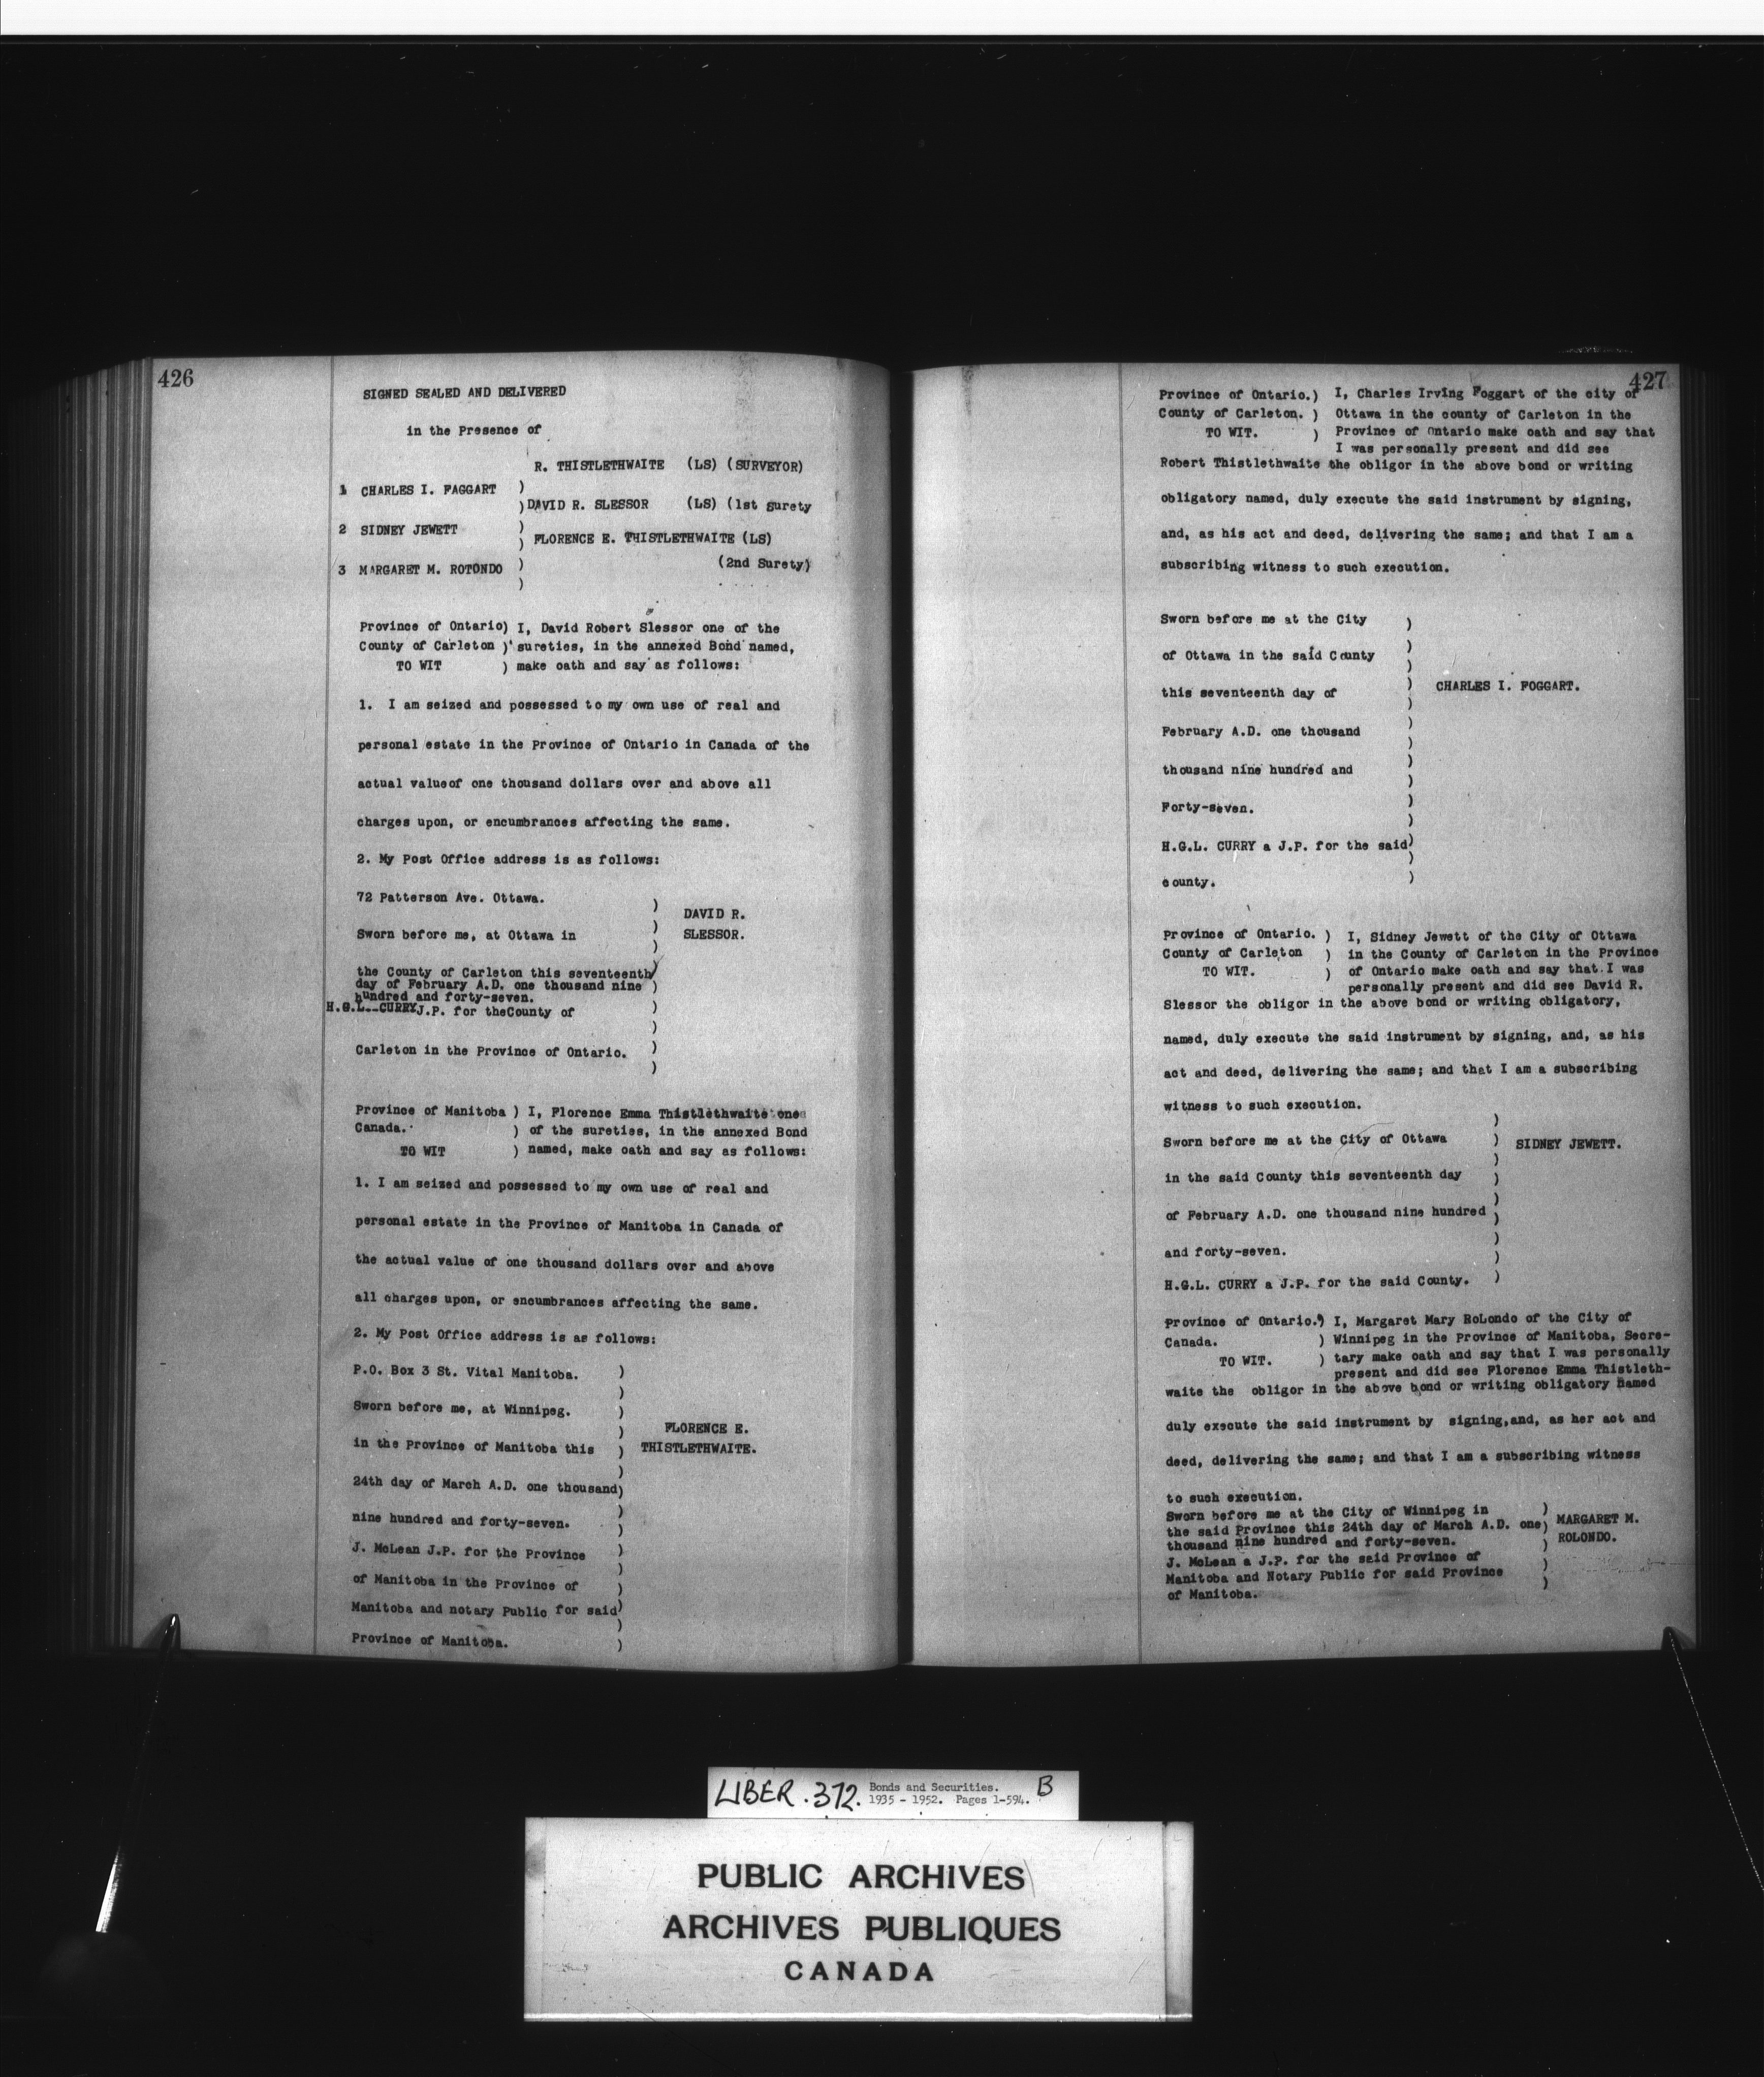 426
SIGNED SEALED AND DELIVERED
in the Presence of
R. THISTLETHWAITE (LS) (SURVEYOR)
1 CHARLES I. FAGGART )
)DAVID R. SLESSOR (LS) (1st Surety
2 SIDNEY JEWETT )
) FLORENCE E. THISTLETHWAITE (LS)
3 MARGARET M. ROTONDO ) (2nd Surety)
)
Province of Ontario) I, David Robert Slessor one of the
County of Carleton ) sureties, in the annexed Bond named,
TO WIT ) make oath and say as follows:
1. I am seized and possessed to my own use of real and
personal estate in the Province of Ontario in Canada of the
actual valueof one thousand dollars over and above all
charges upon, or encumbrances affecting the same.
2. My Post Office address is as follows:
72 Patterson Ave. Ottawa. )
DAVID R.
Sworn before me, at Ottawa in ) SLESSOR.
)
the County of Carleton this seventeenth)
day of February A.D. one thousand nine )
hundred and forty-seven.
H.G.L. CURRYJ.P. for theCounty of )
)
Carleton in the Province of Ontario. )
)
Province of Manitoba ) I, Florence Emma Thistlethwaite one
Canada. ) of the sureties, in the annexed Bond
TO WIT ) named, make oath and say as follows:
1. I am seized and possessed to my own use of real and
personal estate in the Province of Manitoba in Canada of
the actual value of one thousand dollars over and above
all charges upon, or encumbrances affecting the same.
2. My Post Office address is as follows:
P.O. Box 3 St. Vital Manitoba. )
)
Sworn before me, at Winnipeg. )
) FLORENCE E.
in the Province of Manitoba this ) THISTLETHWAITE.
)
24th day of March A.D. one thousand)
)
nine hundred and forty-seven. )
J. McLean J.P. for the Province )
)
of Manitoba in the Province of )
Manitoba and notary Public for said)
)
Province of Manitoba. )
427
Province of Ontario.) I, Charles Irving Foggart of the city of
County of Carleton. ) Ottawa in the county of Carleton in the
TO WIT. ) Province of Ontario make oath and say that
I was personally present and did see
Robert Thistlethwaite the obligor in the above bond or writing
obligatory named, duly execute the said instrument by signing,
and, as his act and deed, delivering the same; and that I am a
subscribing witness to such execution.
Sworn before me at the City )
)
of Ottawa in the said County )
)
this seventeenth day of ) CHARLES I. FOGGART.
)
)
February A.D. one thousand )
)
thousand nine hundred and )
)
Forty-seven. )
)
H.G.L. CURRY a J.P. for the said)
)
county. )
Province of Ontario. ) I, Sidney Jewett of the City of Ottawa
County of Carleton ) in the County of Carleton in the Province
TO WIT. ) of Ontario make oath and say that I was
personally present and did see David R.
Slessor the obligor in the above bond or writing obligatory,
named, duly execute the said instrument by signing, and, as his
act and deed, delivering the same; and that I am a subscribing
witness to such execution.
)
Sworn before me at the City of Ottawa ) SIDNEY JEWETT.
)
in the said County this seventeenth day )
)
of February A.D. one thousand nine hundred )
)
and forty-seven. )
H.G.L. CURRY a J.P. for the said County. )
Province of Ontario.) I, Margaret Mary RoLondo of the City of
Canada. ) Winnipeg in the Province of Manitoba, Secre-
TO WIT. ) tary make oath and say that I was personally
present and did see Florence Emma Thistleth-
waite the obligor in the above bond or writing obligatory named
duly execute the said instrument by signing,and, as her act and
deed, delivering the same; and that I am a subscribing witness
to such execution.
Sworn before me at the City of Winnipeg in )
the said Province this 24th day of March A.D. one) MARGARET M.
thousand nine hundred and forty-seven. ) ROLONDO.
J. McLean a J.P. for the said Province of )
Manitoba and Notary Public for said Province )
of Manitoba.
LIBER. 372. Bonds and Securities. B
1935 - 1952. Pages 1-594.
PUBLIC ARCHIVES
ARCHIVES PUBLIQUES
CANADA